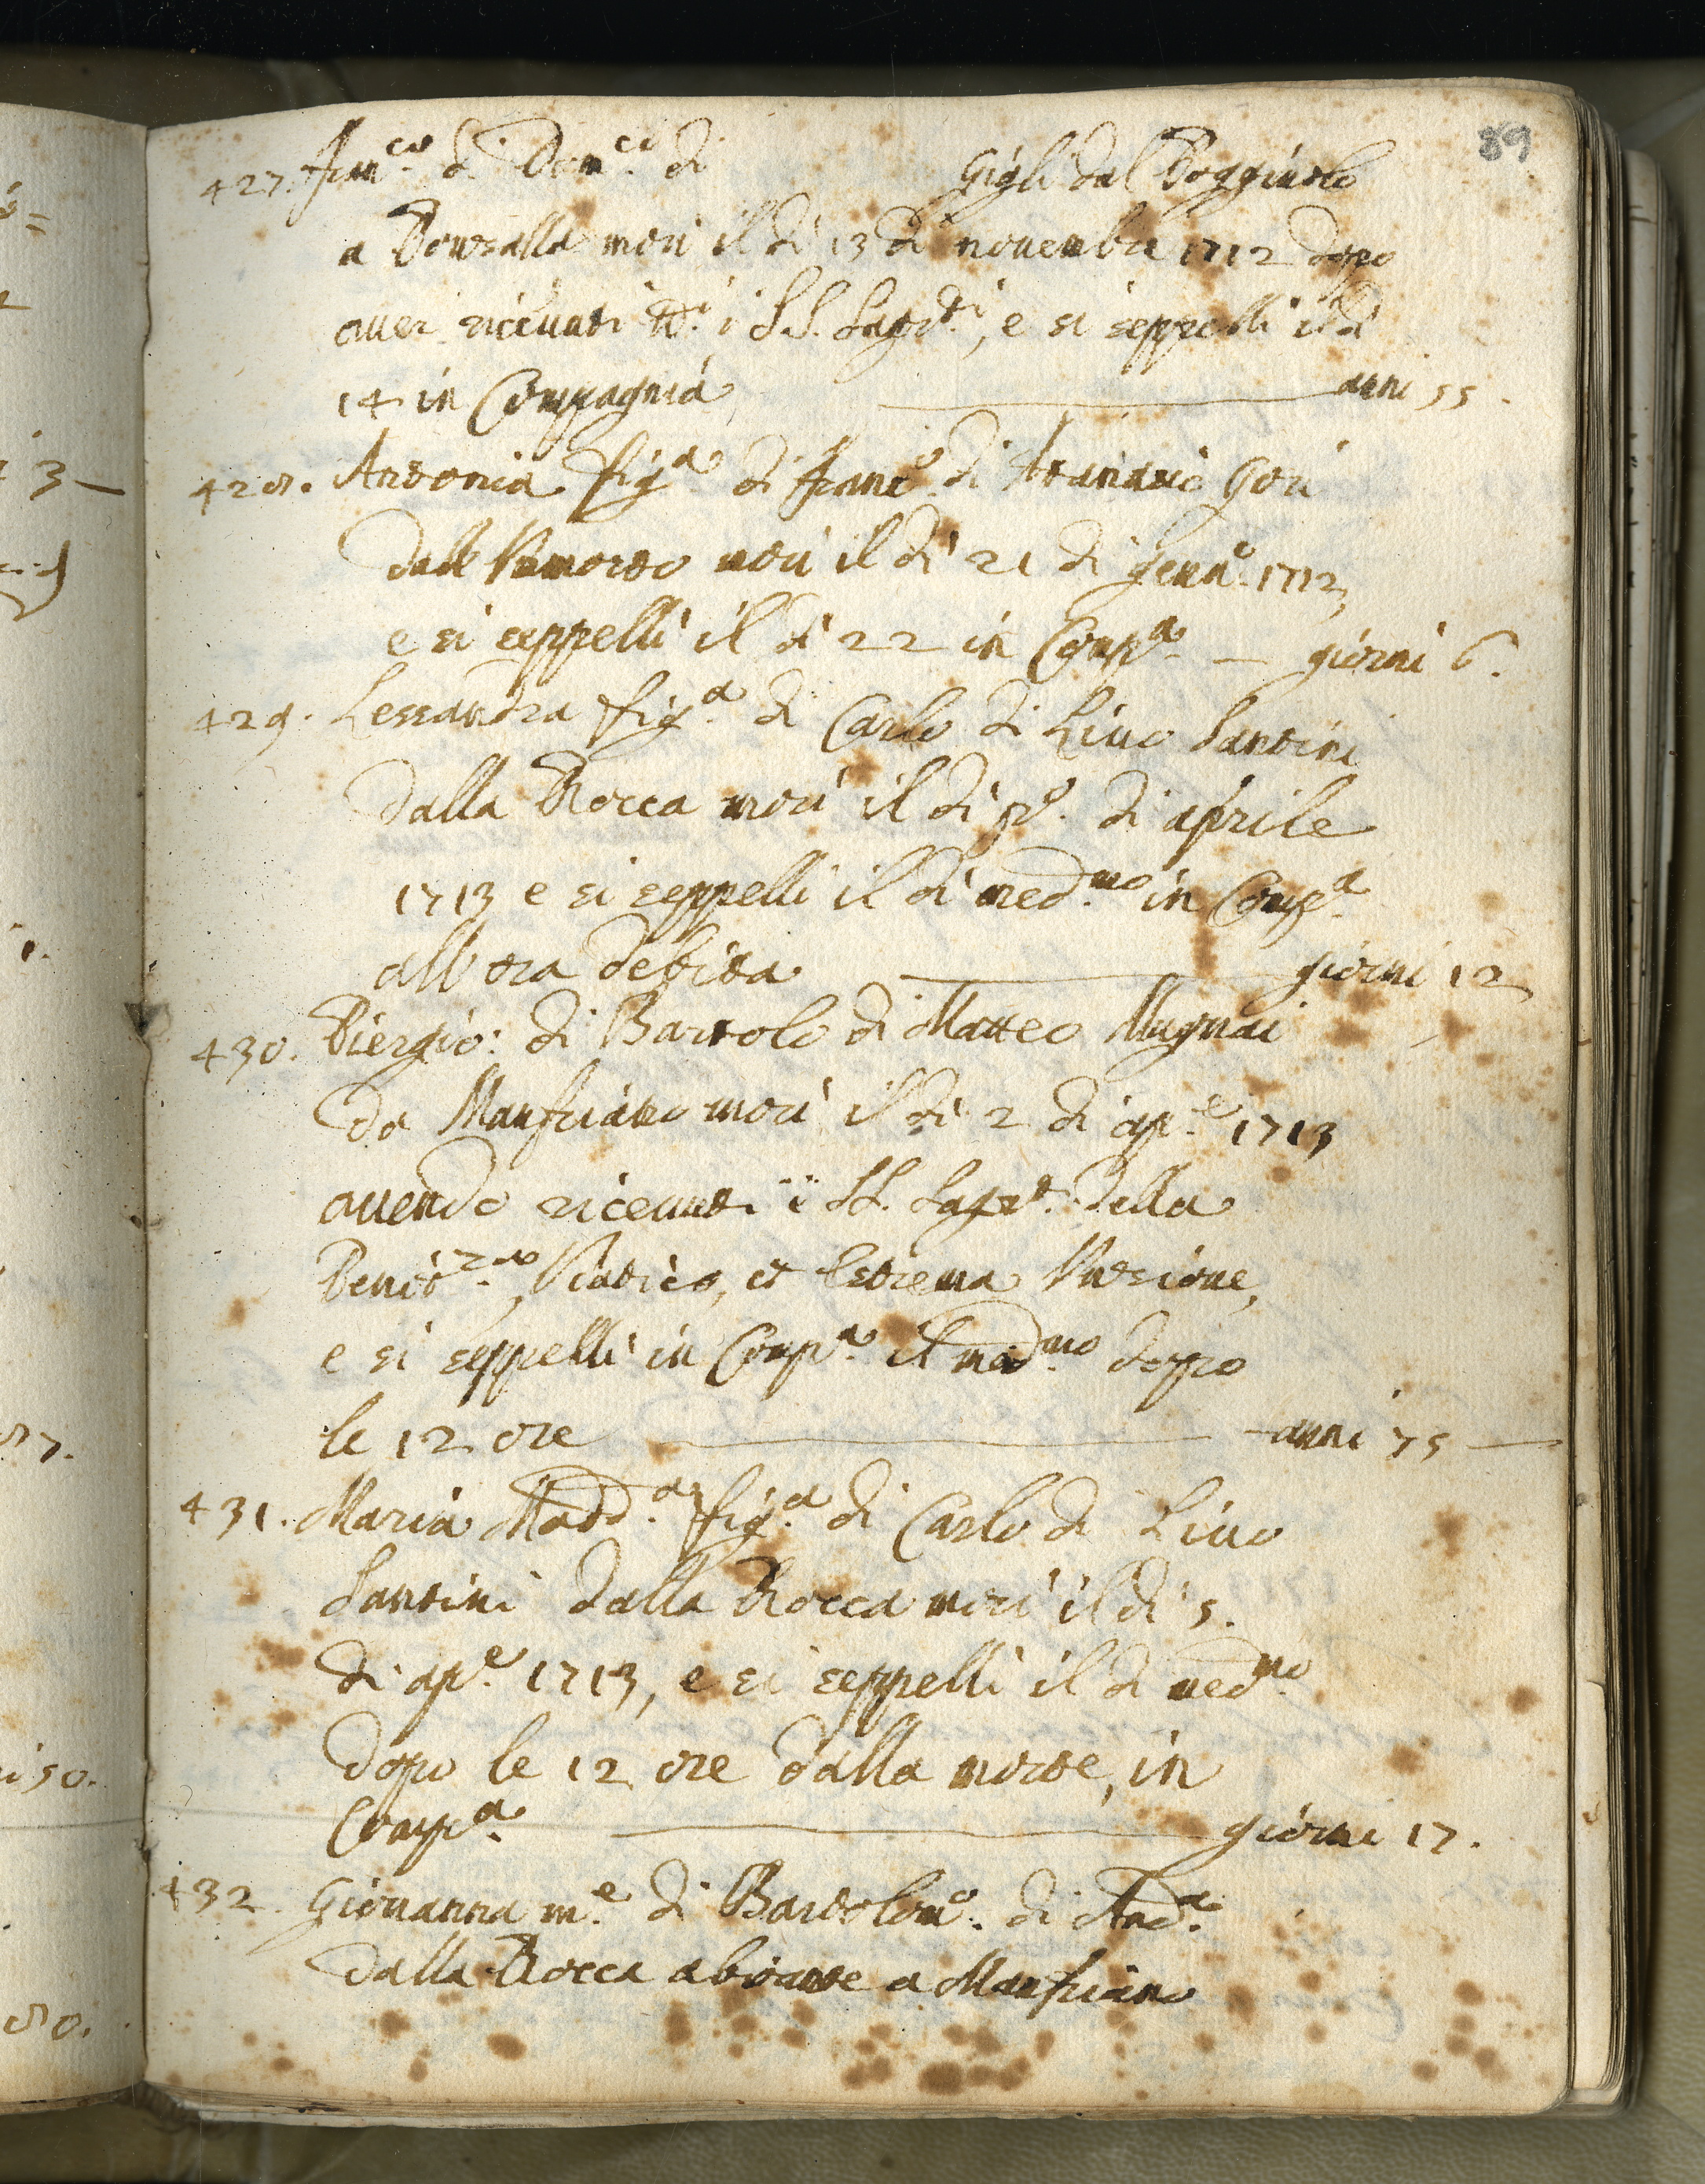 89
427. Fran.co di Dom.co di Gigli dal Poggiuolo
a Bonzalla morì il dì 13 di novembre 1712 dopo
auer riceuuti tt.i i SS. Sagr.ti, e si seppellì il dì
14 in Compagnia anni 55.
428. Antonia fig.a di Franc.o di Attanasio Gori
dall morì il dì 21 di Genn.o 1712,
e si seppellì il dì 22 in Comp.a giorni 6.
429. Lessandra fig.a di Carlo di Liuo Santini
dalla Rocca morì il dì p.o di aprile
1713 e si seppellì il dì med.mo in Comp.a
all'ora debita giorni 12
430. Piergio: di Bartolo di Matteo Mugnai
da Manfriano morì il dì 2 di ap.e 1713
auendo riceuuti i SS. Sagr.ti della
Penit.za, Viatico, et Estrema Vnzione,
e si seppellì in Comp.a il med.mo dopo
le 12 ore anni 75
431. Maria Madd.a fig.a di Carlo di Liuo
Santini dalla Rocca morì il dì 5.
di ap.e 1713, e si seppellì il dì med.mo
dopo le 12 ore dalla morte, in
Comp.a giorni 17.
432. Giouanna m.e di Bartolom.o di And.a
dalla Rocca abitante a Manfriano